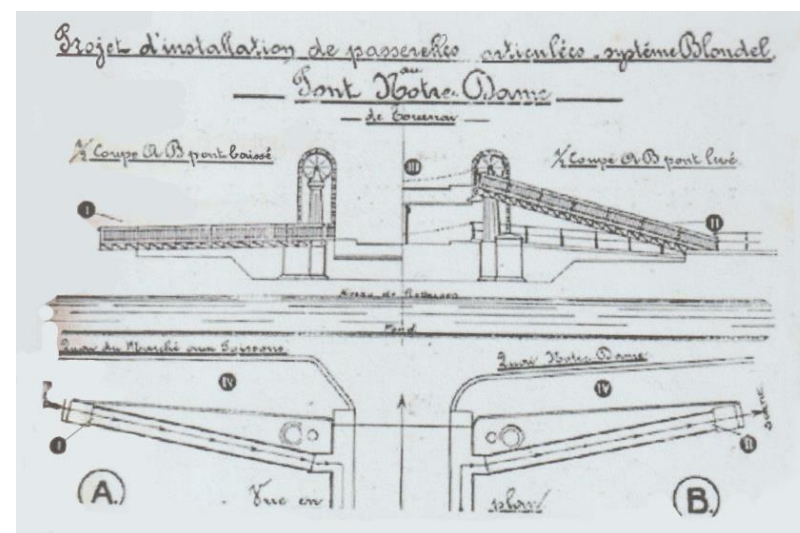 Projet d'installation de passerelles articulées. système Blondel.
au
Pont Notre-Dame
de Tournai
½ Coupe A B pont baissé
III
½ Coupe A B pont levé.
I
II
Fond
Quai du Marché aux Poissons
Quai Notre-Dame
IV
IV
I
II
A.
Vue en plan
B.